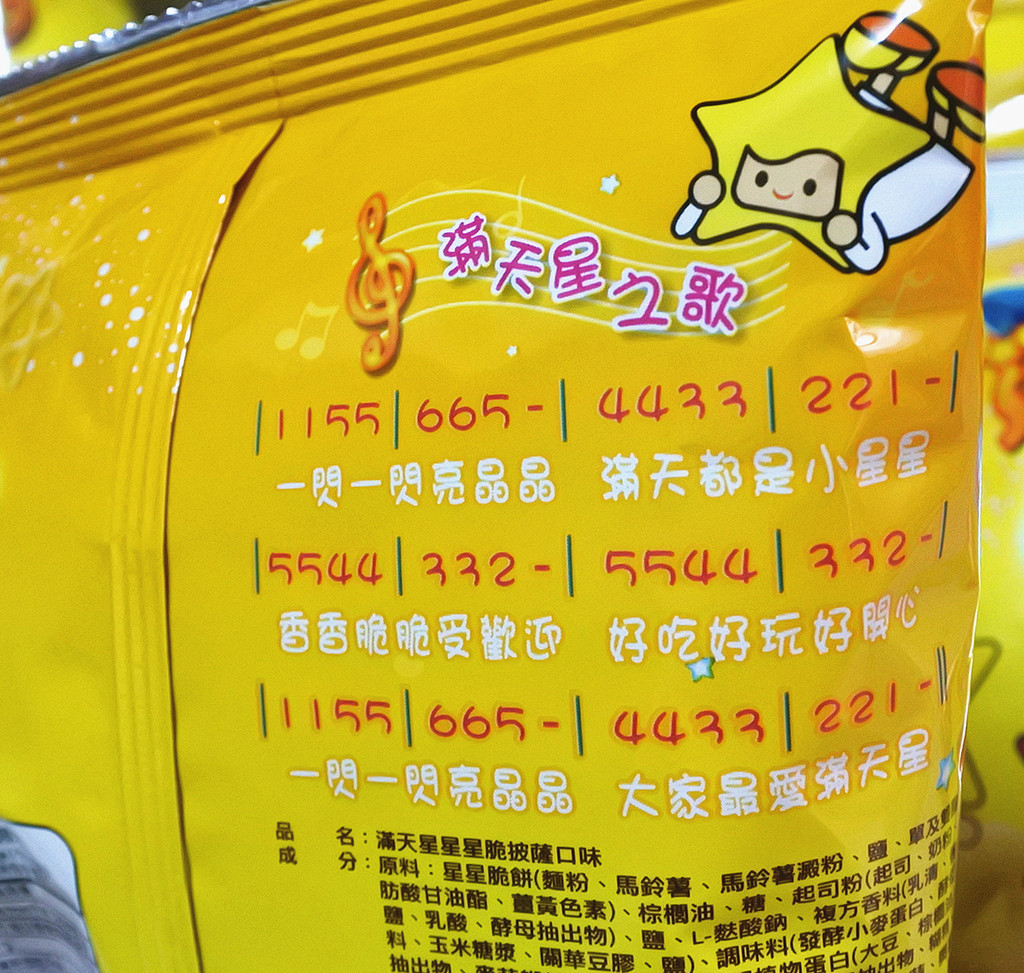 滿天星之歌
|1155|665-|4433|221-|
一閃一閃亮晶晶 滿天都是小星星
|5544|332-|5544|332-|
香香脆脆受歡迎 好吃好玩好開心
|1155|665-|4433|221-||
一閃一閃亮晶晶 大家最愛滿天星
品 名：滿天星星星脆披薩口味
成 分：原料：星星脆餅(麵粉、馬鈴薯、馬鈴薯澱粉、鹽、單及
肪酸甘油酯、薑黃色素)、棕櫚油、糖、起司粉(起司、奶粉、
鹽、乳酸、酵母抽出物)、鹽、L-麩酸鈉、複方香料(乳清、
料、玉米糖漿、關華豆膠、鹽)、調味料(發酵小麥蛋白、
抽出物、 植物蛋白(大豆、棕櫚